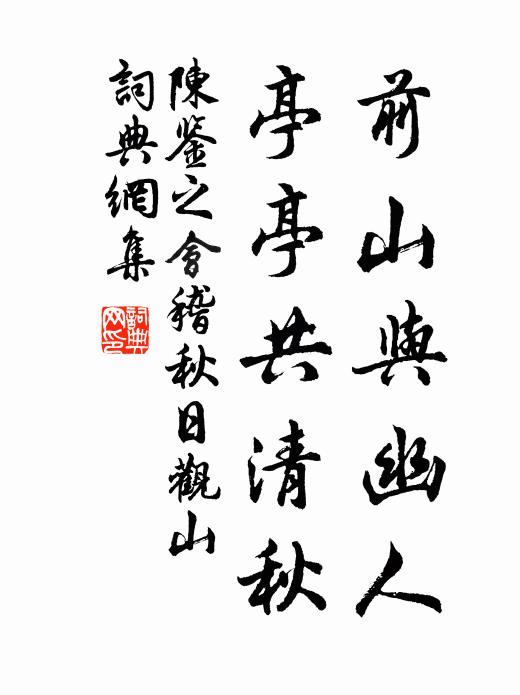 前山與幽人
亭亭共清秋
陳鑒之會稽秋日觀山
詞典網集
詞典网印